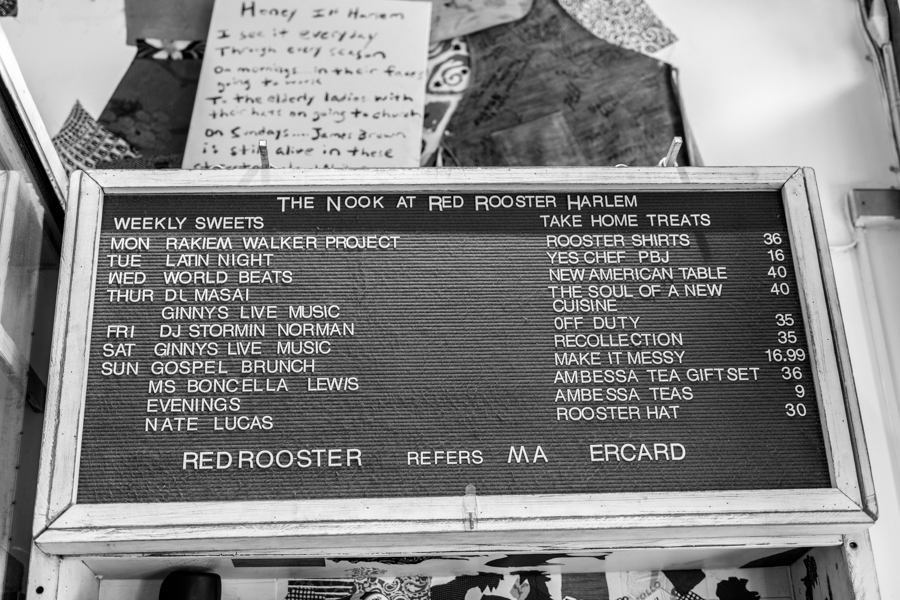 Honey In Harlem
I see it everyday
Through every season
On mornings... in their faces
going to work
To the elderly ladies with
their hats on going to church
on Sundays.... James Brown
is still alive in these
THE NOOK AT RED ROOSTER HARLEM
WEEKLY SWEETS
MON RAKIEM WALKER PROJECT
TUE LATIN NIGHT
WED WORLD BEATS
THUR DL MASAI
GINNYS LIVE MUSIC
FRI DJ STORMIN NORMAN
SAT GINNYS LIVE MUSIC
SUN GOSPEL BRUNCH
MS BONCELLA LEWIS
EVENINGS
NATE LUCAS
TAKE HOME TREATS
ROOSTER SHIRTS 36
YES CHEF PBJ 16
NEW AMERICAN TABLE 40
THE SOUL OF A NEW 40
CUISINE
OFF DUTY 35
RECOLLECTION 35
MAKE IT MESSY 16.99
AMBESSA TEA GIFT SET 36
AMBESSA TEAS 9
ROOSTER HAT 30
RED ROOSTER REFERS MA ERCARD